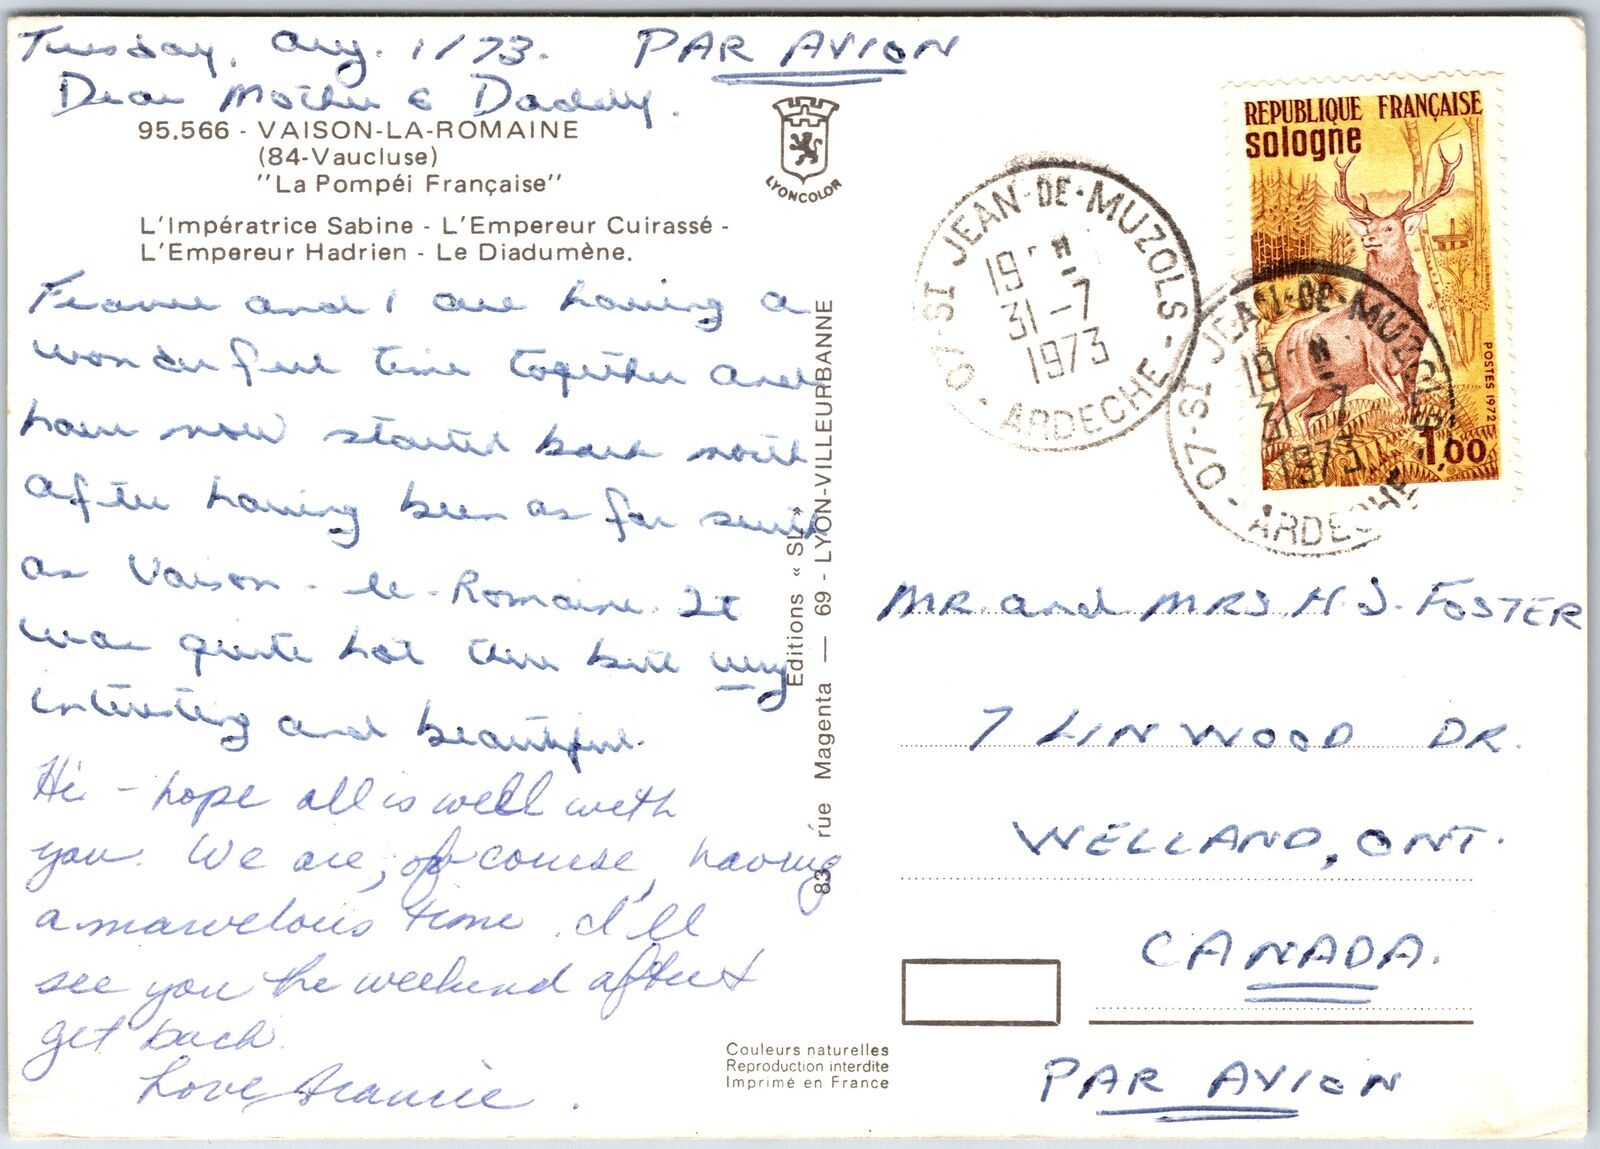 Tuesday, Aug. 1/73.
PAR AVION
Dear Mother & Daddy.
95.566 - VAISON-LA-ROMAINE
(84-Vaucluse)
"La Pompéi Française"
L'Impératrice Sabine - L'Empereur Cuirassé -
L'Empereur Hadrien - Le Diadumène.
LYONCOLOR
Frannie and I are having a
wonderful time together and
have now started back north
after having been as far south
as Vaison-la-Romaine. It
was quite hot there but very
interesting and beautiful.
Hi - hope all is well with
you. We are, of course, having
a marvelous time. I'll
see you the weekend after I
get back.
Love, Frannie.
Editions « SL »
83, rue Magenta — 69 - LYON-VILLEURBANNE
Couleurs naturelles
Reproduction interdite
Imprimé en France
07-ST JEAN-DE-MUZOLS - ARDECHE -
19 H
31-7
1973
REPUBLIQUE FRANÇAISE
sologne
POSTES 1972
1,00
07-ST JEAN-DE-MUZOLS - ARDECHE
19 H
31-7
1973
MR. and MRS H. J. FOSTER
7 LINWOOD DR.
WELLAND, ONT.
CANADA.
PAR AVION